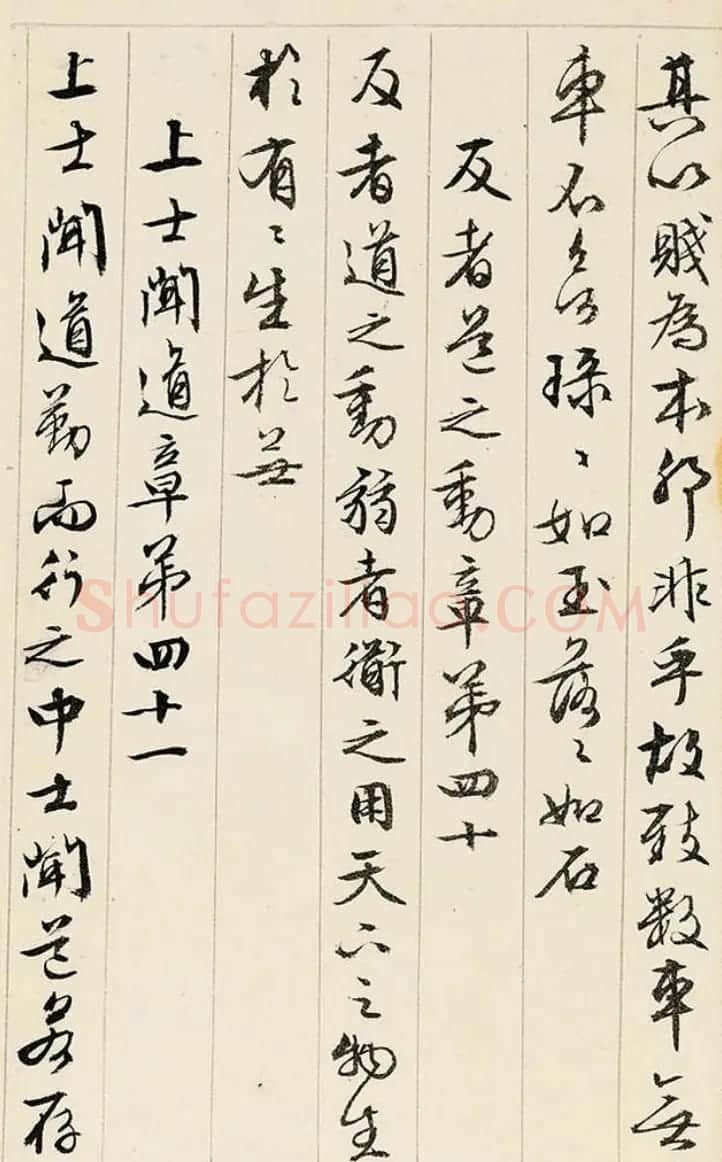 其以賤為本邪非乎故致數車無
車不欲琭〻如玉落〻如石
反者道之動章第四十
反者道之動弱者衜之用天下之物生
於有〻生於無
上士聞道章第四十一
上士聞道勤而行之中士聞道若存
Shufaziliao.COM